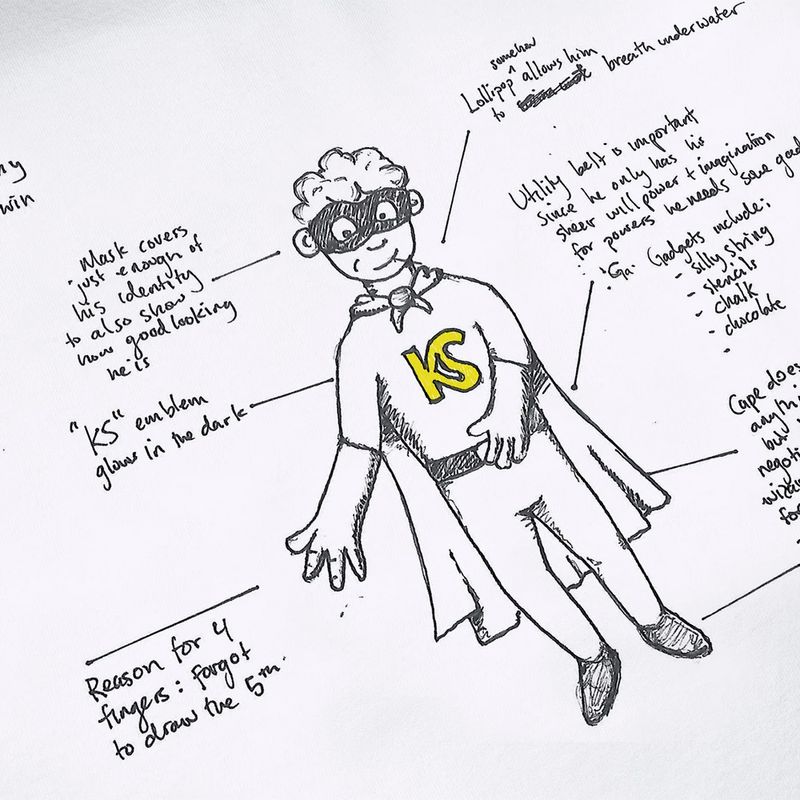 somehow
Lollipop ^ allows him
to breath underwater
Utility belt is important
since he only has his
sheer will power + imagination
for powers he needs some
Gadgets include:
- silly string
- stencils
- chalk
- chocolate
-
Mask covers
just enough of
his identity
to also show
how good looking
he is
"KS" emblem
glows in the dark
KS
Cape does
but
Reason for 4
fingers: Forgot
to draw the 5th.